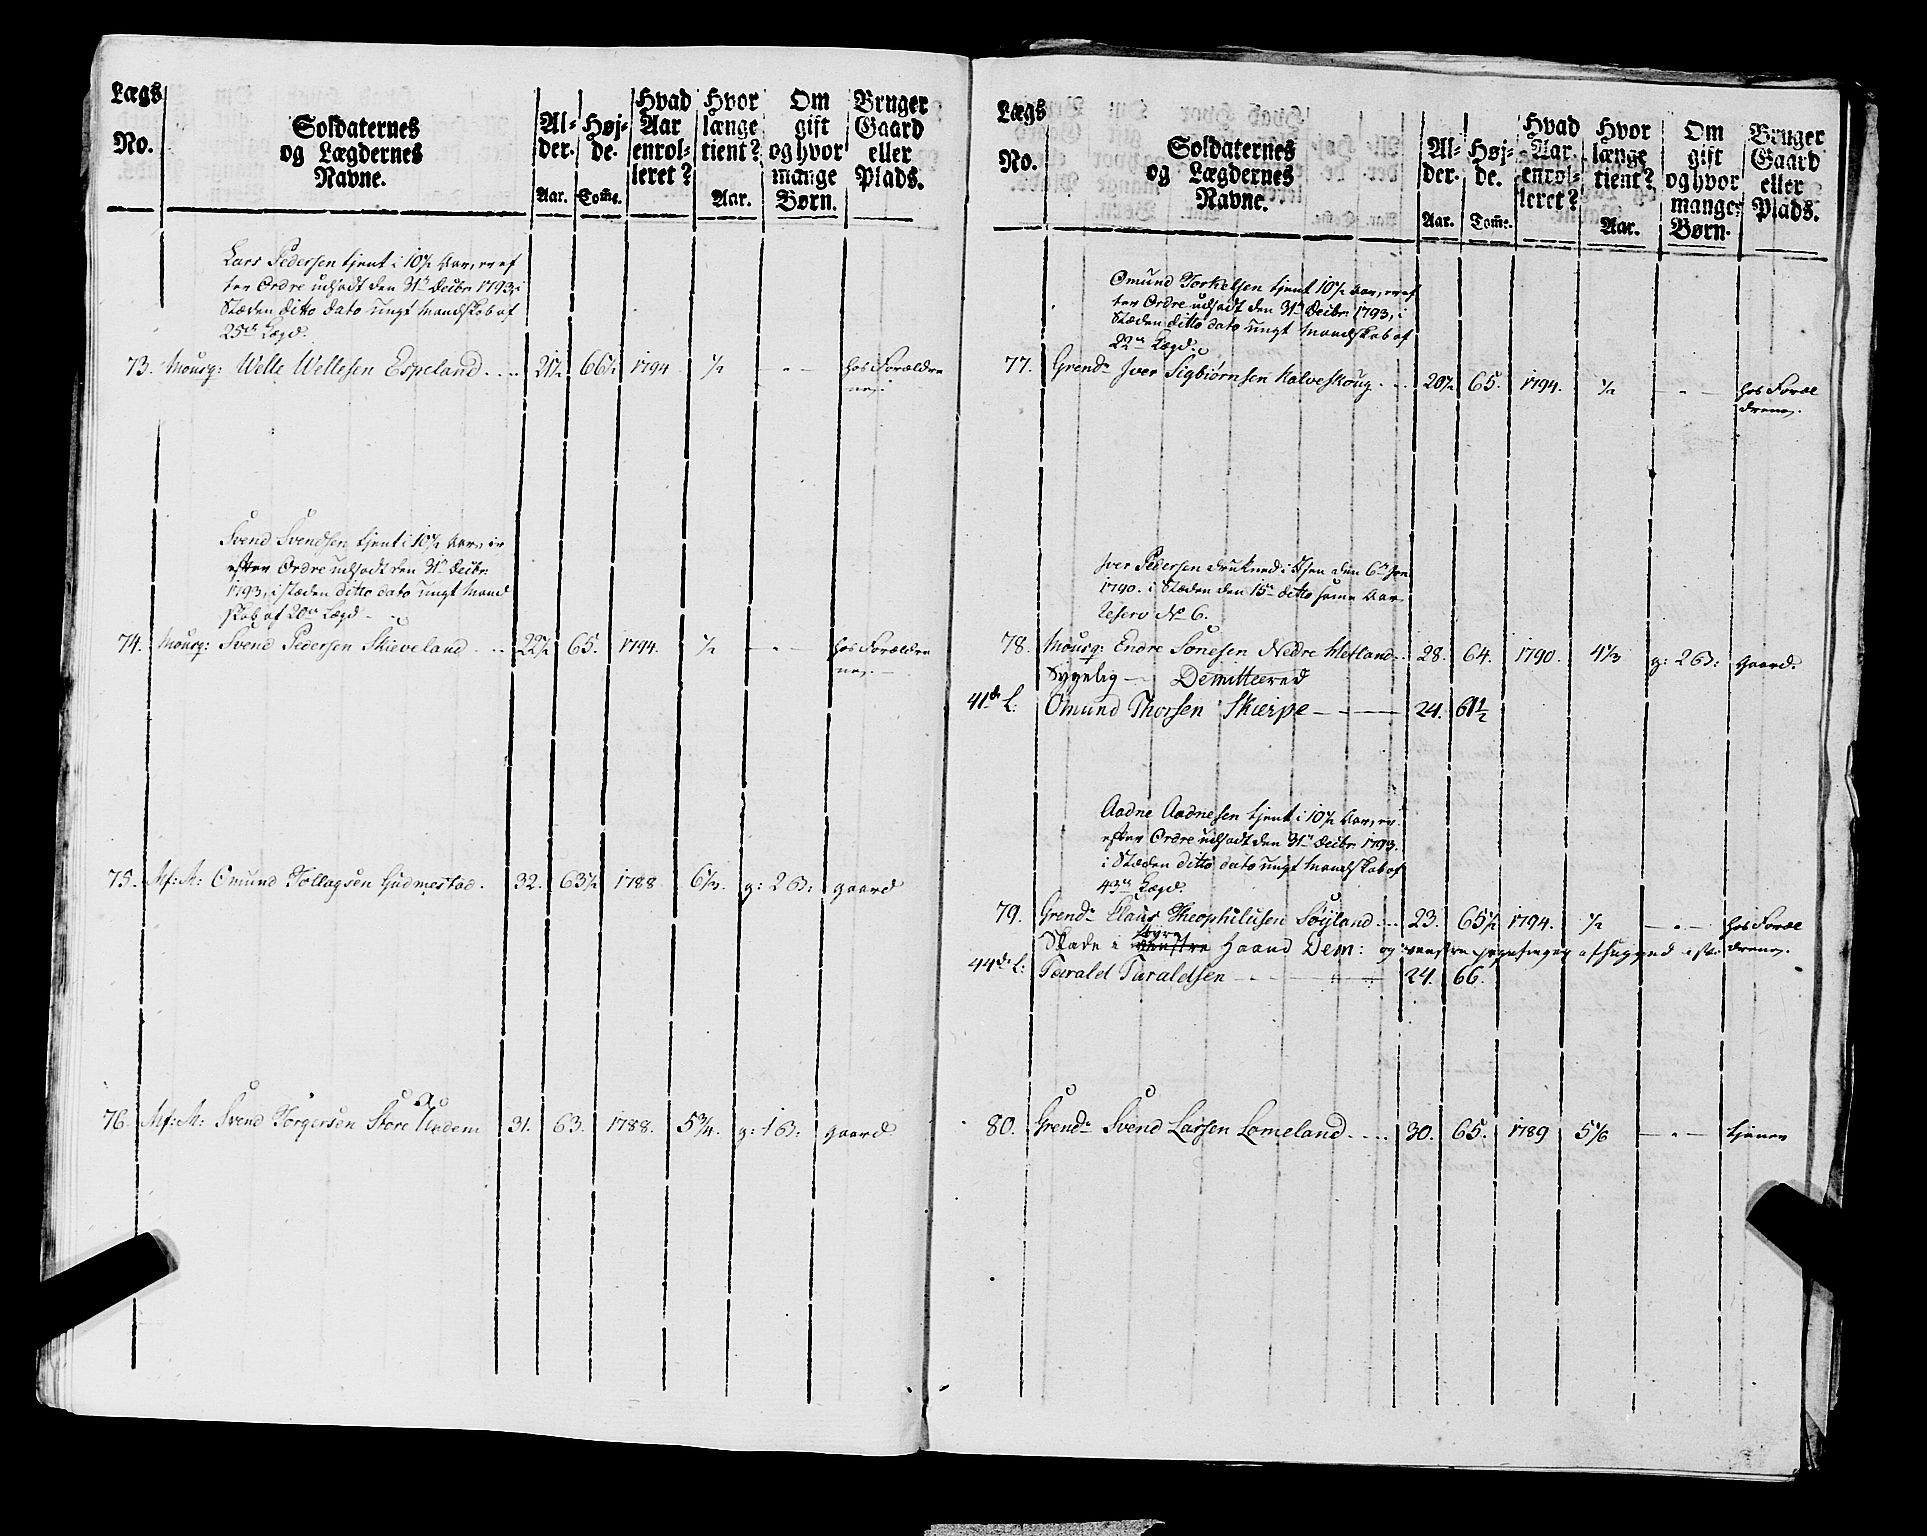 Lægs No.
Soldaternes og Lægdernes Navne.
Al- der. Aar.
Høj- de. Tomе.
Hvad Aar enrol- leret?
Hvor længe tient? Aar.
Om gift og hvor mange Børn.
Bruger Gaard eller Plads.
Lars Pedersen tjent i 10½ Aar, er ef
ter Ordre udsadt den 31te Decbr 1793, i
Stæden ditto dato ungt Mandskab af
25de Lægd.
73. Mousq: Welle Wellesen Espeland 21½ 66½ 1794 ½ - " - hos Forældre
ne.
Svend Svendsen tjent i 10½ Aar, er
efter Ordre udsadt den 31te Decbr
1793, i stæden ditto dato ungt Mand
skab af 20de Lægd
74. Mousq: Svend Pedersen Skieveland 22½ 65. 1794. ½ - " - hos Forældre
ne.
75. Mf: A: Omund Tollagsen Gudmestad. 32. 63½ 1788 6⅓. g: 2 B: gaard
76. Mf: A: Svend Torgersen Store Undem 31. 63. 1788. 5¾. g: 1 B: gaard
Lægs No.
Soldaternes og Lægdernes Navne.
Al- der. Aar.
Høj- de. Tome.
Hvad Aar. enrol- leret?
Hvor længe tient? Aar.
Om gift og hvor mange Børn.
Bruger Gaard eller Plads.
Omund Torkelsen tjent 10½ Aar, er ef
ter Ordre udsadt den 31te Decbr 1793, i
Stæden ditto dato ungt Mandskab af
22de Lægd.
77. Grendr Iver Sigbiørnsen Kalveskoug 20½ 65. 1794. ½ - " - hos Foræl
drene.
Iver Pedersen drukned i Aaen den 6te
1790. i Stæden den 15de ditto same Aar
Reserv No 6.
78. Mousq: Endre Sonesen Nedre Hetland 28. 64. 1790. 4⅓ g: 2 B: gaard.
Sygelig — Demitteered
41de L: Omund Thorsen Skierpe 24. 61½
Aadne Aadnesen tjent i 10½ Aar, er
efter Ordre udsadt den 31te Decbr 1793.
i Stæden ditto dato ungt Mandskab af
43de Lægd.
79. Grendr Claus Theophilusen Søyland 23. 65½ 1794. ½ - " - hos Foræl
drene.
høyre
Skade i venstre Haand Dem: og venstre pegefinger afhugged
44de L: Tarald Taraldsen 24. 66.
80. Grendr Svend Larsen Lomeland 30. 65. 1789 5⅙ - " - tjener